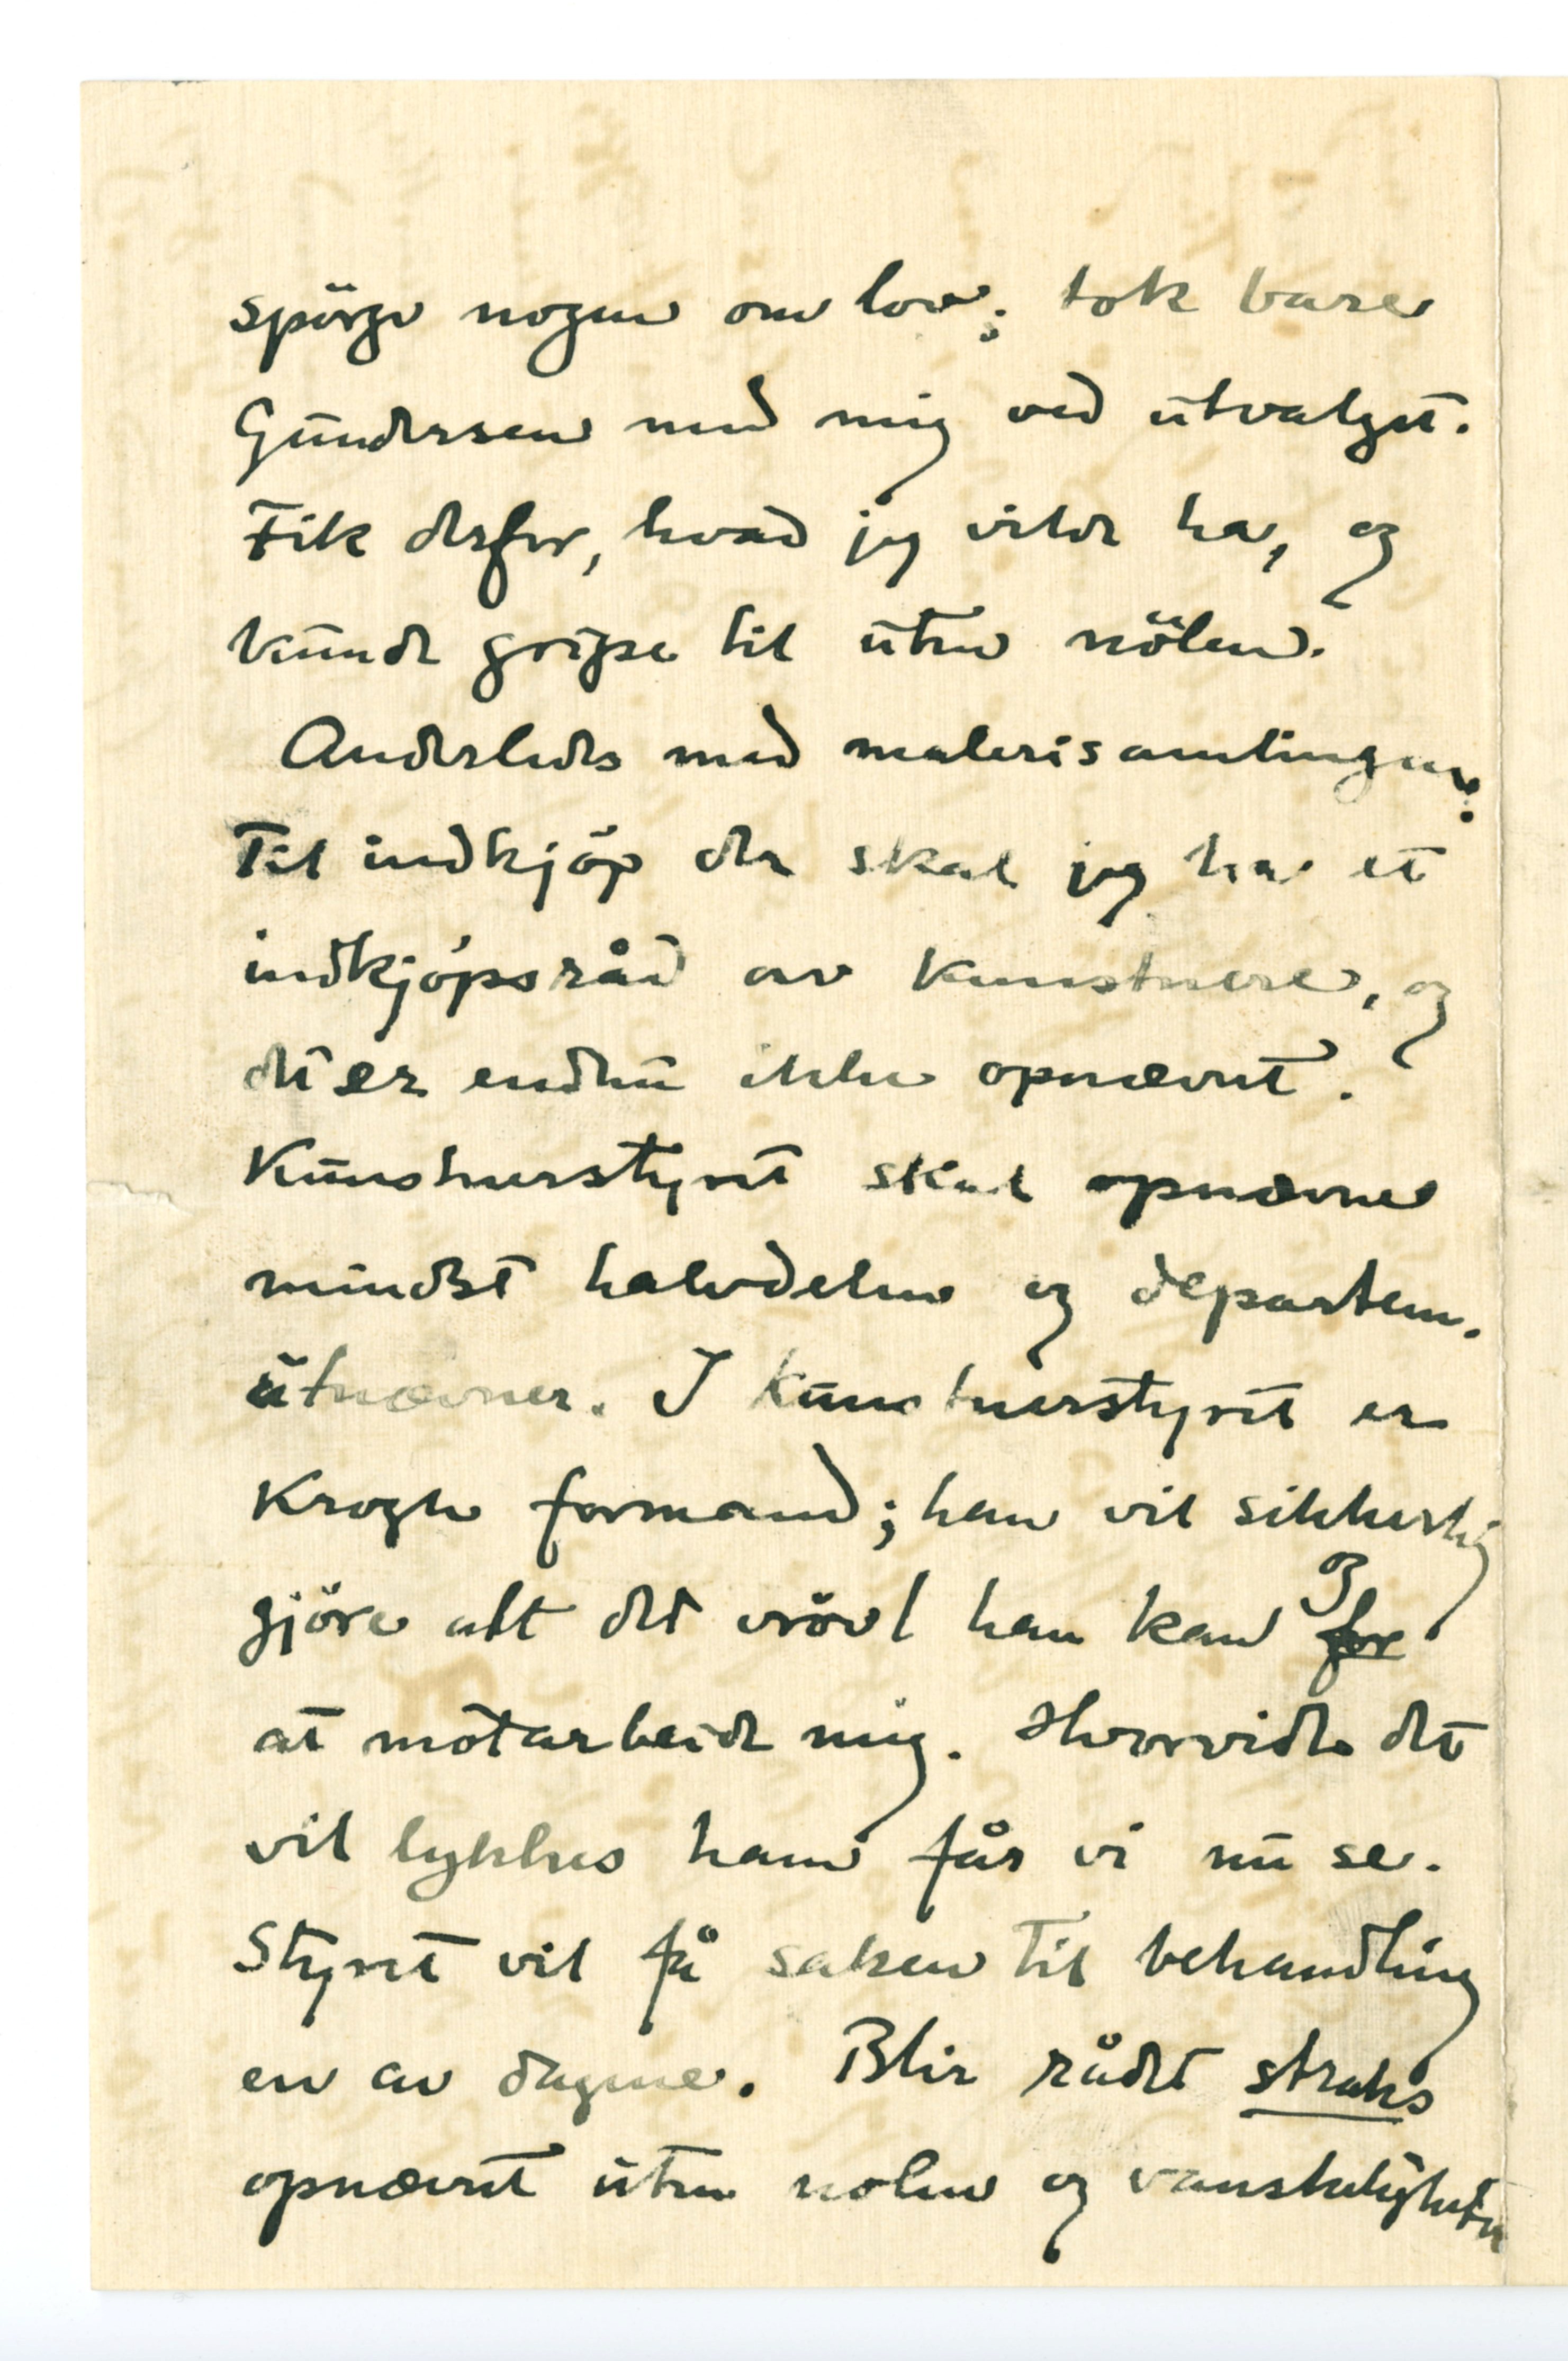 spörge nogen om lov; tok bare
Gundersen med mig ved utvalget.
Fik derfor, hvad jeg vilde ha, og
kunde gripe til uten nölen.
Anderledes med malerisamlingen:
Til indkjöp der skal jeg ha et
indkjöpsråd av kunstnere, og
det er endnu ikke opnævnt.
Kunstnerstyret skal opnævne
mindst halvdelen og departem.
utnævner. I kunstnerstyret er
Krogh formand; han vil sikkerlig
gjöre alt det vrövl han kan ~~for~~ og
at motarbeide mig. Hvorvidt det
vil lykkes ham får vi nu se.
Styret vil få saken til behandling
en av dagene. Blir rådet straks
opnævnt uten nolen og vanskeligheter